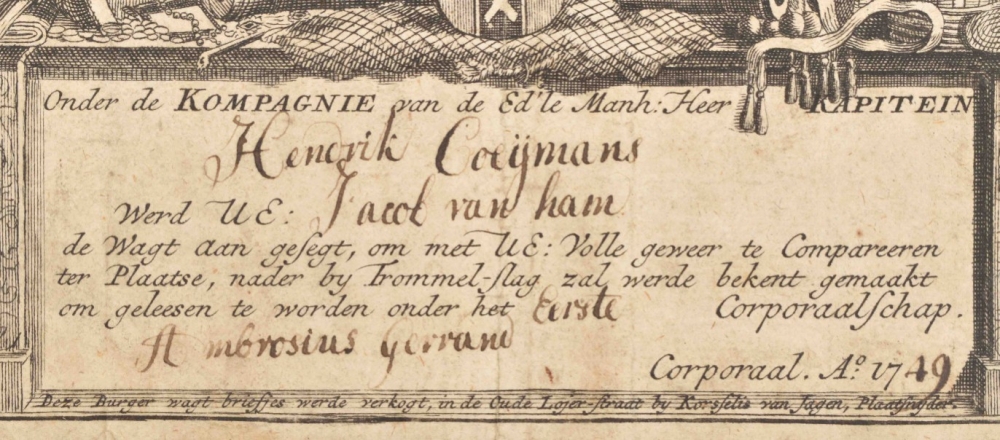 Onder de KOMPAGNIE van de Ed'le Manh: Heer KAPITEIN
Hendrik Coeijmans
Werd UE: Jacob van ham
de Wagt aan gesegt, om met UE: Volle geweer te Compareeren
ter Plaatse, nader by Trommel-slag zal werde bekent gemaakt
om geleesen te worden onder het Eerste Corporaalschap.
Ambrosius Gerrand
Corporaal. Aº 1749
Deze Burger wagt briefjes werde verkogt, in de Oude Loyer-straat by Korsselis van Jagen, Plaatsnyder.